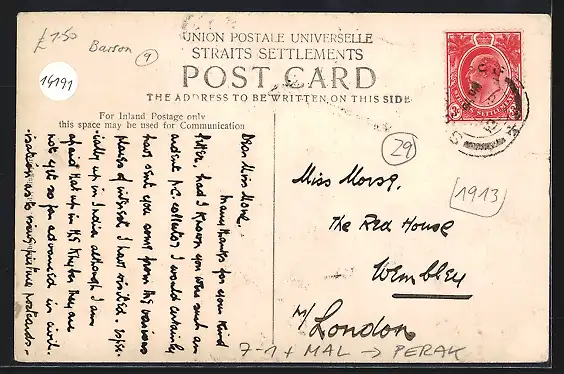 £1.50
Barson
9
14191
UNION POSTALE UNIVERSELLE
STRAITS SETTLEMENTS
POST CARD
THE ADDRESS TO BE WRITTEN ON THIS SIDE
For Inland Postage only
this space may be used for Communication
Dear Miss Morse,
Many thanks for your kind
letter, had I known you were such an
ardent P.C. collector I would certainly
have sent you some from the various
places of interest I have visited, espe-
cially up in India although I am
afraid that up in the Khyber they are
not yet so far advanced in civil-
isation as to manufacture postcards-
29
Miss Morse,
The Red House
Wembley
Nr London
1913
7-1 + MAL → PERAK